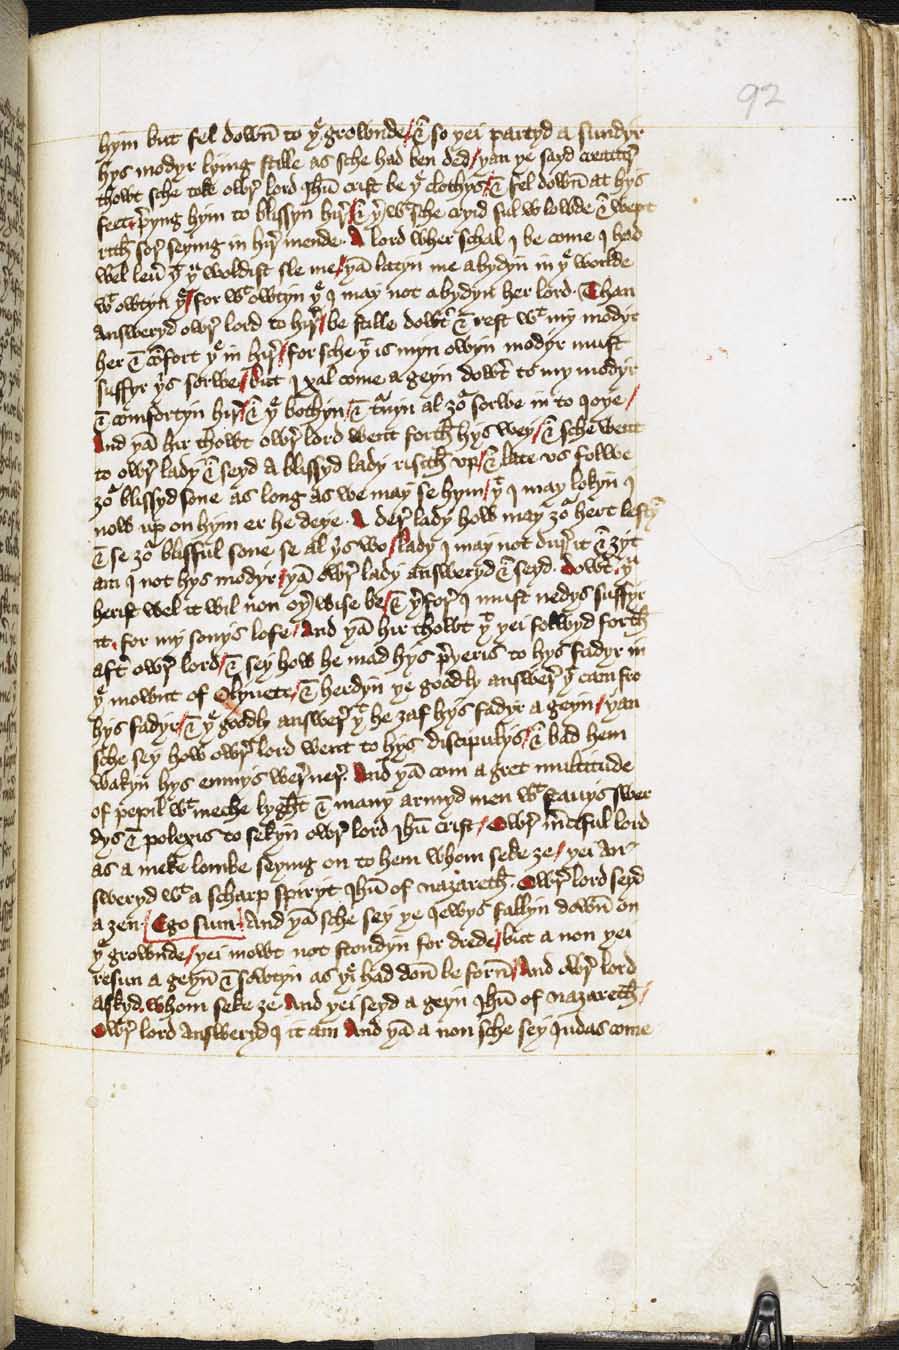 92
hym but fel down̄ to yᵉ grownde / & so yei partyd a sundyr
hys modyr lying stille as sche had ben ded / yan ye sayd creatur̉
thowt sche toke owr̉ lord Ihū crist be yᵉ clothys / & fel down̄ at hys
feet p̉yng hym to blissyn hir̉ / & ỷ wᵗ sche cryid ful wlowde & wept
rith sor̉ seying in hir̉ mende . A lord wher schal I be come I had
wel leū yᵗ yᵘ woldist sle me / yā latyn me abydyn in yᵉ worlde
wᵗ owtyn yᵉ / for wᵗ owtyn yᵉ I may not abydyn her lord . Than
answeryd owr̉ lord to hir̉ / be stille dowt̉ & rest wᵗ my modyr
her & cōfort yᵉ in hir̉ / for sche yᵗ is myn owyn modyr must
suffyr ys sorwe / But I xal come a geyn dowt̉ to my modyr
& comfortyn hir̉ / & yᵉ bothyn / & t̉nyn al ȝoʳ sorwe in to Ioye /
And yā hir thowt owr̉ lord went forth hys wey / & sche went
to owr̉ lady & seyd A blissyd lady risith vp / & late us folwe
ȝoʳ blissyd sone as long as we may se hym / yᵗ I may lokyn I
now up on hym er he deye . A der̉ lady how may ȝoʳ hert lestyn
& se ȝoʳ blisful sone se al ys wo / Lady I may not dur̉ it & ȝyt
am I not hys modyr / yā owr̉ lady answeryd & seyd . Dowt̉ yᵘ
herist wel it wil non oỷ wise be / & ỷfor̉ I must nedys suffyr
it . for my sonys lofe / And yā hir thowt yᵗ yei folwyd forth
aft̉ owr̉ lord / & sey how he mad hys p̉yeris to hys fadyr in
yᵉ mownt of Olyuete / & herdyn ye goodly answer̉ yᵗ cam fro
hys fadyr / & yᵉ goodly answer̉ yᵗ he ȝaf hys fadyr a geyn / yan
sche sey how owr̉ lord went to hys discipulys / & bad hem
wakyn hys enmys wer̉ ner̉ . And yā com a gret multitude
of pepil wᵗ meche lyght & many armyd men wᵗ stauys swer
dys & polexis to sekyn owr̉ lord Ihū crist / Owr̉ m̉cyful lord
as a meke lombe seying on to hem whom seke ȝe / yei An
sweryd wᵗ a scharp spiryt Ihū of nazareth . Owr̉ lord seyd
a ȝen . Ego sum . And yā sche sey ye Iewys fallyn down̄ on
yᵉ grownde / yei mowt not stondyn for drede / but a non yei
resyn a geyn̄ & sowtyn as yᵉi had don̄ be forn̄ / And owr̉ lord
askyd whom seke ȝe And yei seyd a geyn Ihū of Nazareth /
Owr̉ lord answeryd I it am And yā a non sche sey Iudas come